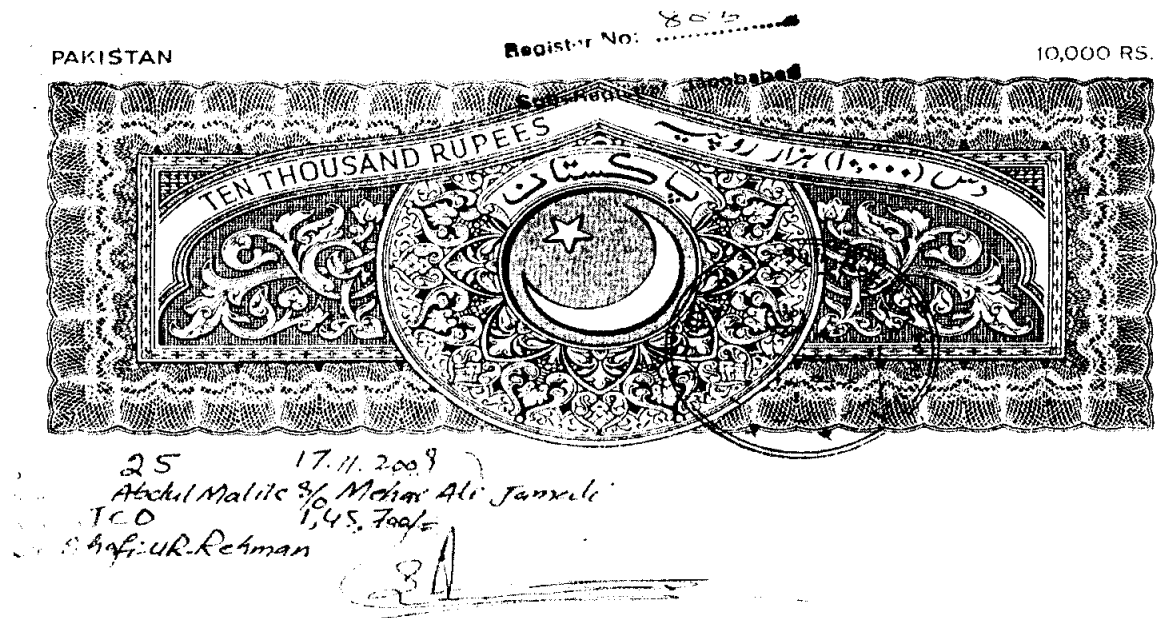 Register No:
PAKISTAN
10,000 RS.
Sub-Registrar Jacobabad
TEN THOUSAND RUPEES
دس (۱۰,۰۰۰) ہزار روپیہ
پاکستان
25 17.11.2008
Abdul Malik S/o Mehar Ali Jamali
TCO 1,45,700/=
Shafi-UR-Rehman